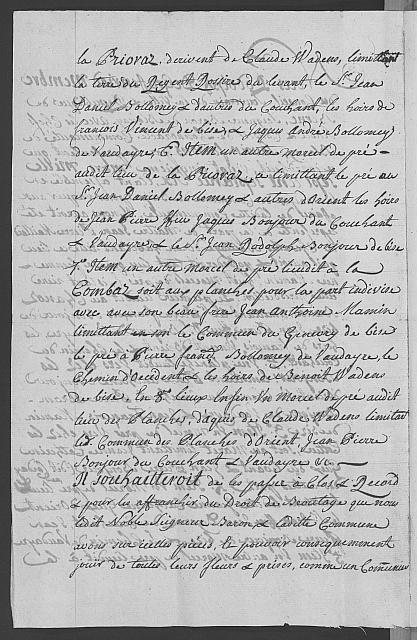 la Priovaz, derivent de Claude Wadens, limittant
la terre du Regent Rossire du levant, le Sr. Jean
Daniel Bollomey & d'autres du Couchant, les hoirs de
francois Vincent de bise, & Jaques André Bollomey
de Vaudayre, 6°. Item un autre morcel de pré
audit lieu de la Priovaz, limittent le pré au
Sr. Jean Daniel Bollomey & autres d'Orient les hoirs
de Jean Pierre Jaques Bonjour du Couchant
& Vaudayre, & le Sr. Jean Rodolph Bonjour de bise
7°. Item un autre morcel de pré lieudit à la
Combaz soit aux planches pour la part indivise
avec, avec son beau frere Jean Anthoine Mamin
limittant en son le Commun du de bise
le pré à Pierre franç Bollomey de Vaudayre, le
Chemin d'Occident & les hoirs de Benoit Wadens
de bise, En 8e. lieux Enfin Un Morcel de pré audit
lieu des Planches, d'aquis de Claude Wadens limitant
les Commun des Planches d'Orient, Jean Pierre
Bonjour du Couchant & Vaudayre &c.
Il souhaitteroit de les passer à Clos & Record
& pour les affranchir du Droit de Broutage que nous
ledit Noble Seigneur Baron, & ladite Commune
avons sur icelles pieces, & pouvoir consequemment
jouir de toutes leurs fleurs & prises, comme un Communier